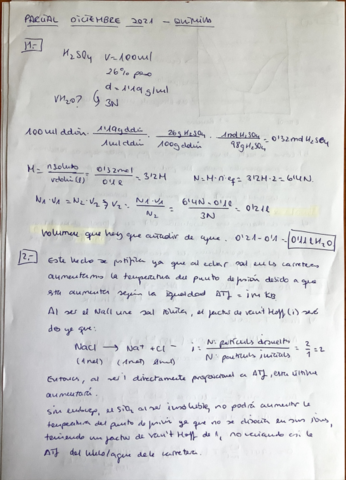 PARCIAL DICIEMBRE 2021 - QUÍMICA
1.-
H₂SO₄ V=100ml
26% peso
d = 1'19 g/ml
VH₂O? 3N
100 ml ddón · 1'19g ddón / 1ml ddón · 26g H₂SO₄ / 100g ddón · 1mol H₂SO₄ / 98g H₂SO₄ = 0'32mol H₂SO₄
M = nsoluto / vddón (l) = 0'32mol / 0'1l = 3'2M N = M·nºef = 3'2M·2 = 6'4N.
N₁·V₁ = N₂·V₂ → V₂ = N₁·V₁ / N₂ = 6'4N·0'1l / 3N = 0'21l
Volumen que hay que añadir de agua. 0'21-0'1 = 0'11l H₂O
2.-
Este hecho se justifica ya que al echar sal en las carreteras
aumentamos la temperatura del punto de fusión debido a que
esta aumenta según la igualdad ΔTf = i·m·Kf
Al ser el NaCl una sal soluble, el factor de van't Hoff (i) será
de ya que:
NaCl → Na⁺ + Cl⁻ i = Nº partículas disueltas / Nº partículas iniciales = 2/1 = 2
(1mol) (1mol) (1mol)
Entonces, al ser i directamente proporcional a ΔTf, esta última
aumentará.
Sin embargo, el SiO₂ al ser insoluble, no podrá aumentar la
temperatura del punto de fusión ya que no se disocia en sus iones,
teniendo un factor de van't Hoff de 1, no variando así la
ΔTf del hielo/agua de la carretera.